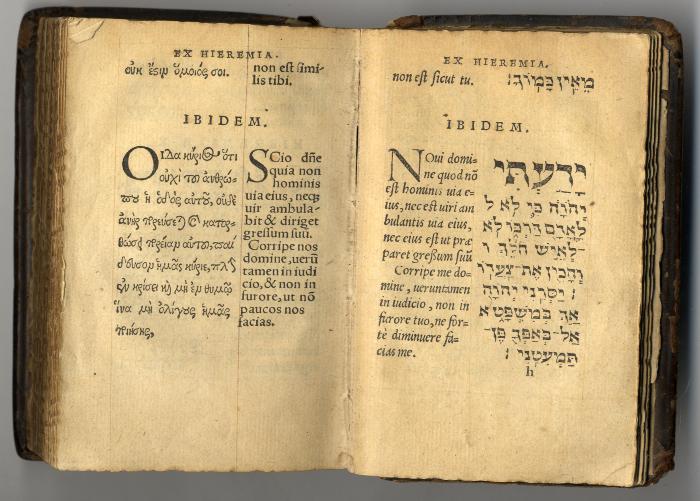 EX HIEREMIA.
οὐκ ἔστιν ὅμοιός σοι.
non est simi-
lis tibi.
IBIDEM.
Οἶδα κύριε ὅτι
οὐχὶ τοῦ ἀνθρώ-
που ἡ ὁδὸς αὐτοῦ, οὐδὲ
ἀνὴρ πορεύσεται καὶ κατορ-
θώσει πορείαν αὐτοῦ, παί
δευσον ἡμᾶς κύριε, πλὴν
ἐν κρίσει καὶ μὴ ἐν θυμῷ
ἵνα μὴ ὀλίγους ἡμᾶς
ποιήσῃς,
SCio dñe
quia non
hominis
uia eius, neq;
uir ambula-
bit & diriget
gressum suũ.
Corripe nos
domine, uerũ
tamen in iudi
cio, & non in
furore, ut nõ
paucos nos
facias.
EX HIEREMIA.
non est sicut tu.
מֵאֵין כָּמוֹךָ׃
IBIDEM.
NOui domi-
ne quod nõ
est hominis uia e-
ius, nec est uiri am
bulantis uia eius,
nec eius est ut præ
paret gressum suũ
Corripe me do-
mine, ueruntamen
in iudicio, non in
furore tuo, ne for-
tè diminuere fa-
cias me.
יָדַעְתִּי
יְהֹוָה כִּי לֹא ל
לָאָדָם דַּרְכּוֹ לֹא
לְאִישׁ הֹלֵךְ ו
וְהָכִין אֶת־צַעֲדוֹ
׃ יַסְּרֵנִי יְהֹוָה
אַךְ בְּמִשְׁפָּט א
אַל־בְּאַפְּךָ פֶּן־
תַּמְעִטֵנִי׃
h